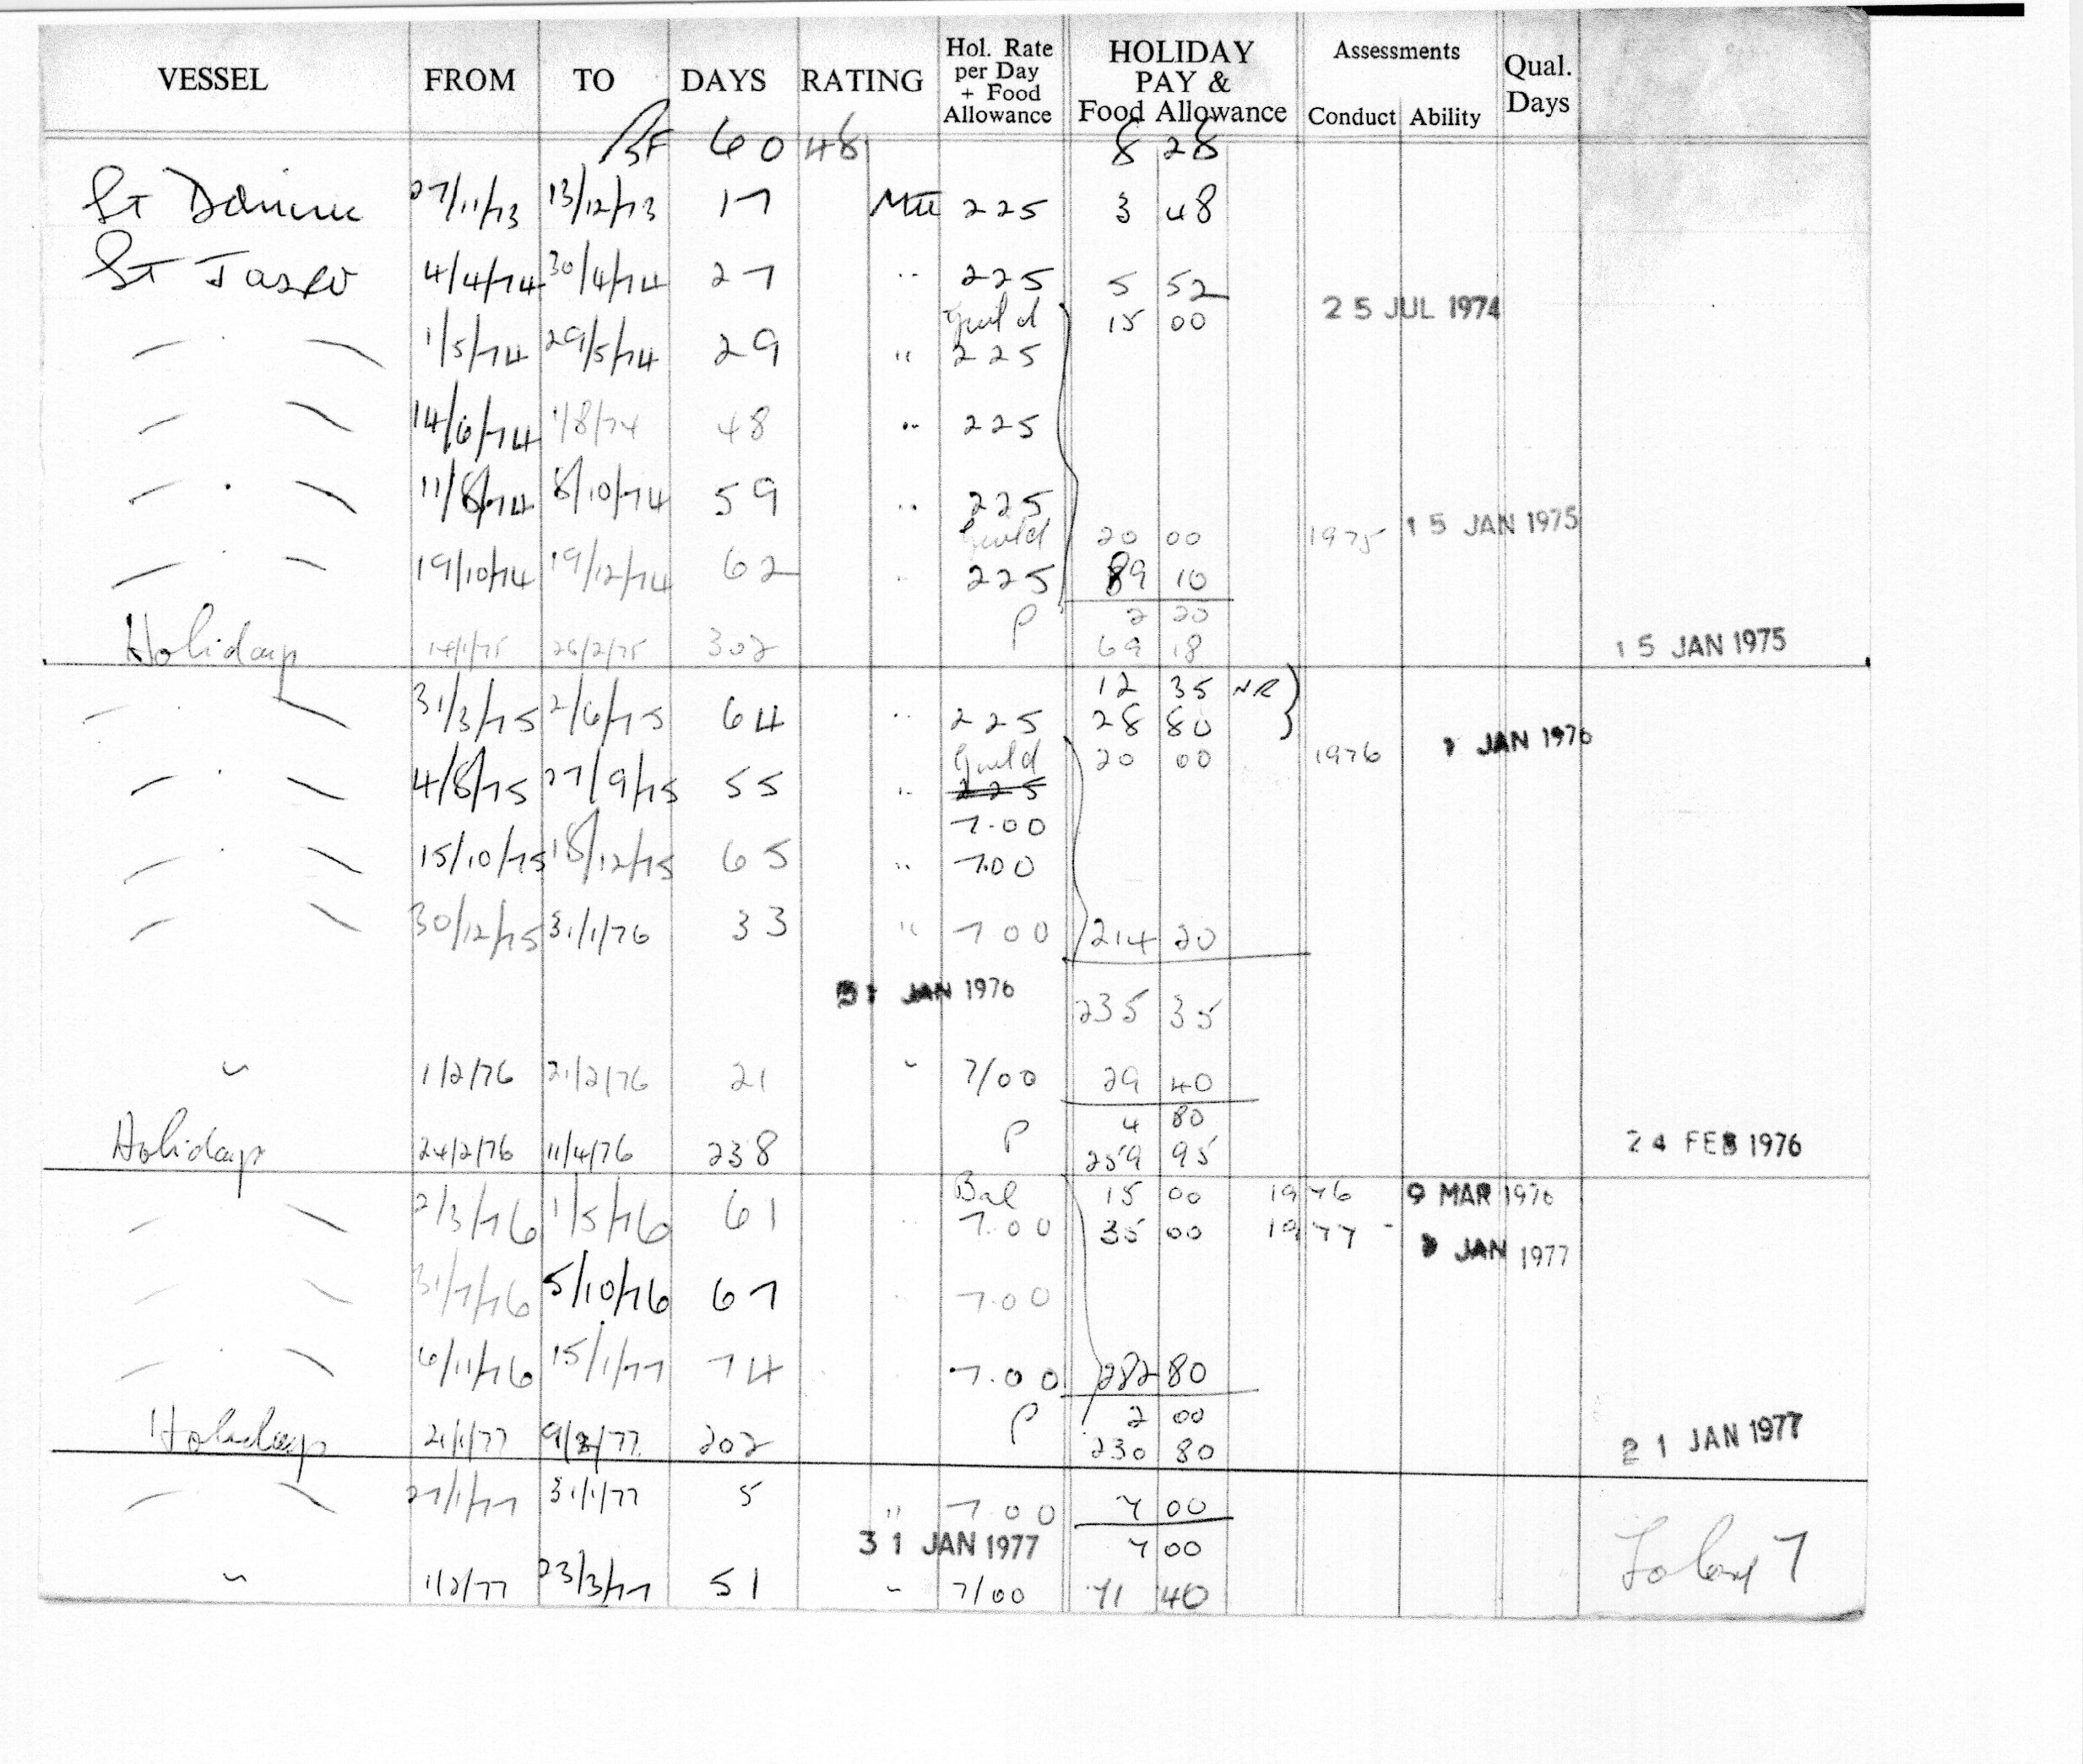 VESSEL FROM TO DAYS RATING Hol. Rate per Day + Food Allowance HOLIDAY PAY & Food Allowance Assessments Conduct Ability Qual. Days
BF 60 48 8 28
St Dominic 27/11/73 13/12/73 17 225 3 48
St Jasper 4/4/74 30/4/74 27 " 225 5 52
Guild 15 00 25 JUL 1974
1/5/74 29/5/74 29 " 225
14/6/74 1/8/74 48 " 225
11/8/74 8/10/74 59 " 225
Guild 20 00 1975 15 JAN 1975
19/10/74 19/12/74 62 " 225 89 10
P 2 20
Holidays 14/1/75 26/2/75 302 69 18 15 JAN 1975
12 35 NR
31/3/75 2/6/75 64 " 225 28 80
Guild 20 00 1976 JAN 1976
4/8/75 27/9/75 55 " 225
7.00
15/10/75 18/12/75 65 " 7.00
30/12/75 31/1/76 33 " 7 00 214 20
31 JAN 1976 235 35
" 1/2/76 21/2/76 21 " 7/00 29 40
P 4 80
Holidays 24/2/76 11/4/76 238 259 95 24 FEB 1976
Bal 15 00 1976 9 MAR 1976
2/3/76 1/5/76 61 7.00 35 00 1977 - JAN 1977
31/7/76 5/10/76 67 7.00
6/11/76 15/1/77 74 7.00 282 80
P 2 00
Holidays 21/1/77 202 230 80 21 JAN 1977
27/1/77 31/1/77 5 " 7 00 7 00
31 JAN 1977 7 00
" 1/2/77 23/3/77 51 " 7/00 71 40
7